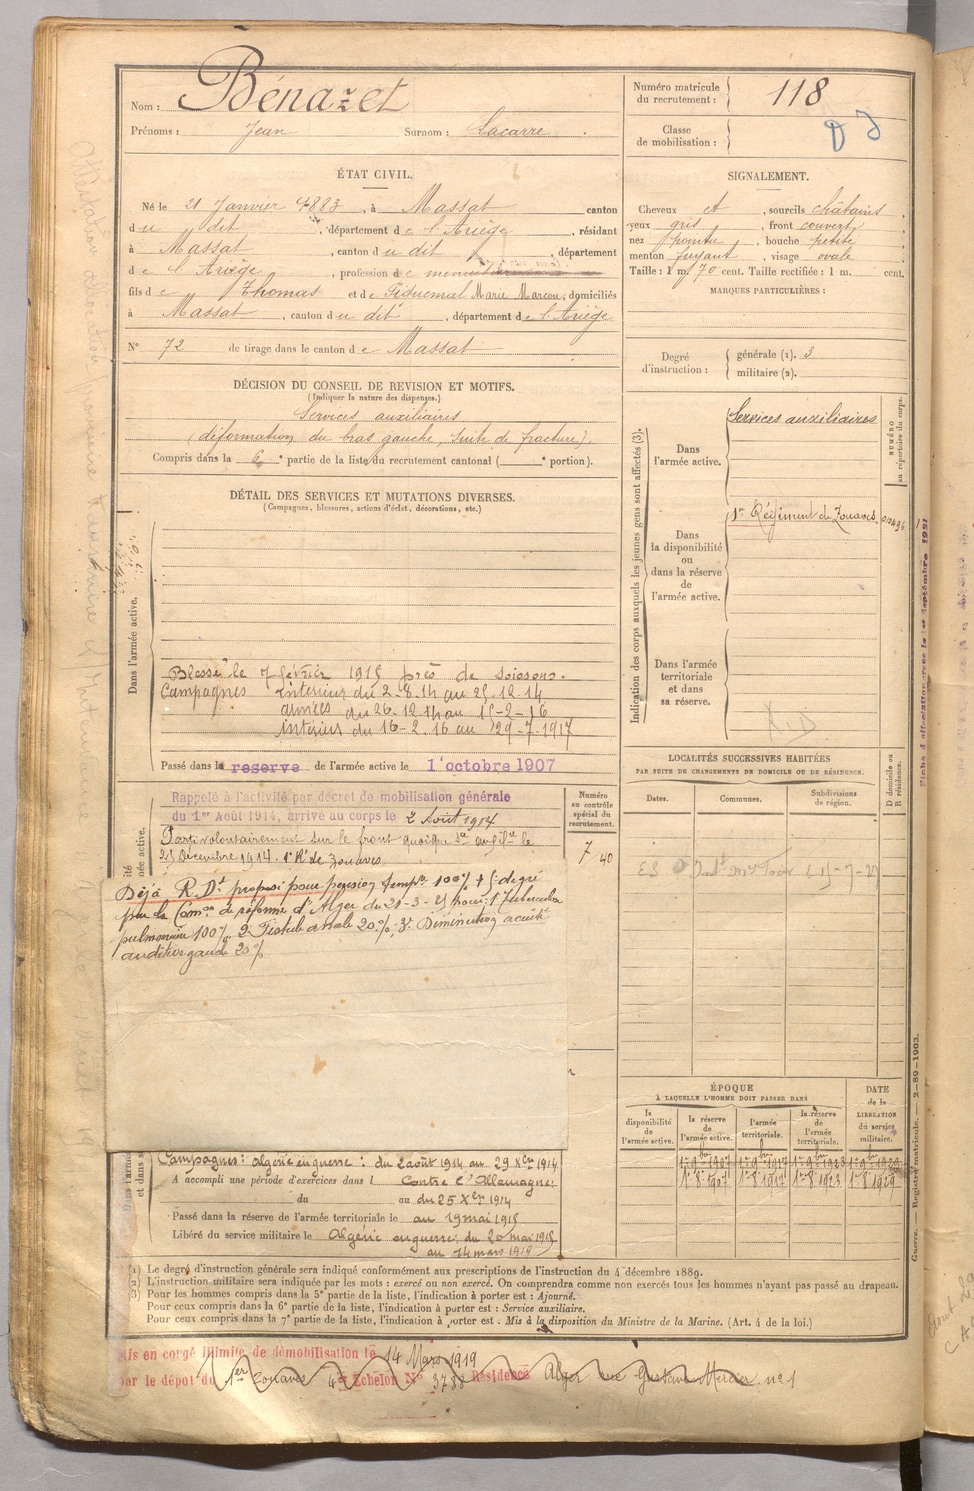 Nom : Bénazet
Prénoms : Jean Surnom : Lacarre .
Numéro matricule du recrutement : 118
Classe de mobilisation :
ÉTAT CIVIL.
Né le 21 Janvier 1883, à Massat canton
du dit, département de l'Ariège, résidant
à Massat, canton du dit, département
de l'Ariège, profession de
fils de Thomas et de Piquemal Marie Marcou, domiciliés
à Massat, canton du dit, département de l'Ariège
N° 72 de tirage dans le canton de Massat
SIGNALEMENT.
Cheveux et, sourcils châtains,
yeux gris, front couvert,
nez pointu, bouche petite
menton fuyant, visage ovale
Taille : 1 m. 70 cent. Taille rectifiée : 1 m. cent.
MARQUES PARTICULIÈRES :
Degré d'instruction : générale (1). 3
militaire (2).
DÉCISION DU CONSEIL DE REVISION ET MOTIFS.
(Indiquer la nature des dispenses.)
Services auxiliaires
(déformation du bras gauche, suite de fracture).
Compris dans la 6e partie de la liste du recrutement cantonal ( e portion).
DÉTAIL DES SERVICES ET MUTATIONS DIVERSES.
(Campagnes, blessures, actions d'éclat, décorations, etc.)
Dans l'armée active.
Blessé le 7 février 1915 près de Soissons.
Campagnes intérieur du 2-8-14 au 25-12-14
armées du 26-12-14 au 15-2-16
intérieur du 16-2-16 au 29-7-1917
Passé dans la reserve de l'armée active le 1er octobre 1907
Indication des corps auxquels les jeunes gens sont affectés (3).
NUMÉRO au répertoire du corps.
Dans l'armée active.
Services auxiliaires
Dans la disponibilité ou dans la réserve de l'armée active.
1er Régiment de Zouaves.
Dans l'armée territoriale et dans sa réserve.
LOCALITÉS SUCCESSIVES HABITÉES
PAR SUITE DE CHANGEMENTS DE DOMICILE OU DE RÉSIDENCE.
Dates. Communes. Subdivisions de région.
D domicile ou R résidence.
Rappelé à l'activité par décret de mobilisation générale
du 1er Août 1914, arrivé au corps le 2 Août 1914
Parti volontairement sur le front quoique Sce auxil. le
25 Décembre 1914. 1er Rt de Zouaves
Numéro au contrôle spécial du recrutement.
7 40
Déjà R.Dt proposé pour pension tempre 100% + 5e degré
par la Comon de réforme d'Alger du 20-3-25 pour: 1° Tuberculose
pulmonaire 100%. 2° Fistule anale 20%; 3° Diminution acuité
auditive gauche 20%
ÉPOQUE
À LAQUELLE L'HOMME DOIT PASSER DANS
la disponibilité de l'armée active.
la réserve de l'armée active.
l'armée territoriale.
la réserve de l'armée territoriale.
DATE de la LIBERATION du service militaire.
1er 8 1907 1er 8 1917 1er 8 1923 1er 8 1929
Campagnes: Algérie en guerre : du 2 août 1914 au 29 Xbre 1914
A accompli une période d'exercices dans l Contre l'Allemagne:
du au du 25 Xbre 1914
Passé dans la réserve de l'armée territoriale le au 19 mai 1915
Libéré du service militaire le Algérie en guerre, du 20 mai 1915
au 14 mars 1919
(1) Le degré d'instruction générale sera indiqué conformément aux prescriptions de l'instruction du 4 décembre 1889.
(2) L'instruction militaire sera indiquée par les mots : exercé ou non exercé. On comprendra comme non exercés tous les hommes n'ayant pas passé au drapeau.
(3) Pour les hommes compris dans la 5e partie de la liste, l'indication à porter est : Ajourné.
Pour ceux compris dans la 6e partie de la liste, l'indication à porter est : Service auxiliaire.
Pour ceux compris dans la 7e partie de la liste, l'indication à porter est : Mis à la disposition du Ministre de la Marine. (Art. 4 de la loi.)
Guerre. — Registre matricule. — 2-89-1903.
Mis en congé illimité de démobilisation le 14 Mars 1919
par le dépôt du 1er Zouaves 4e Echelon N° 3788 Résidence Alger rue Gustave Mercier no 1